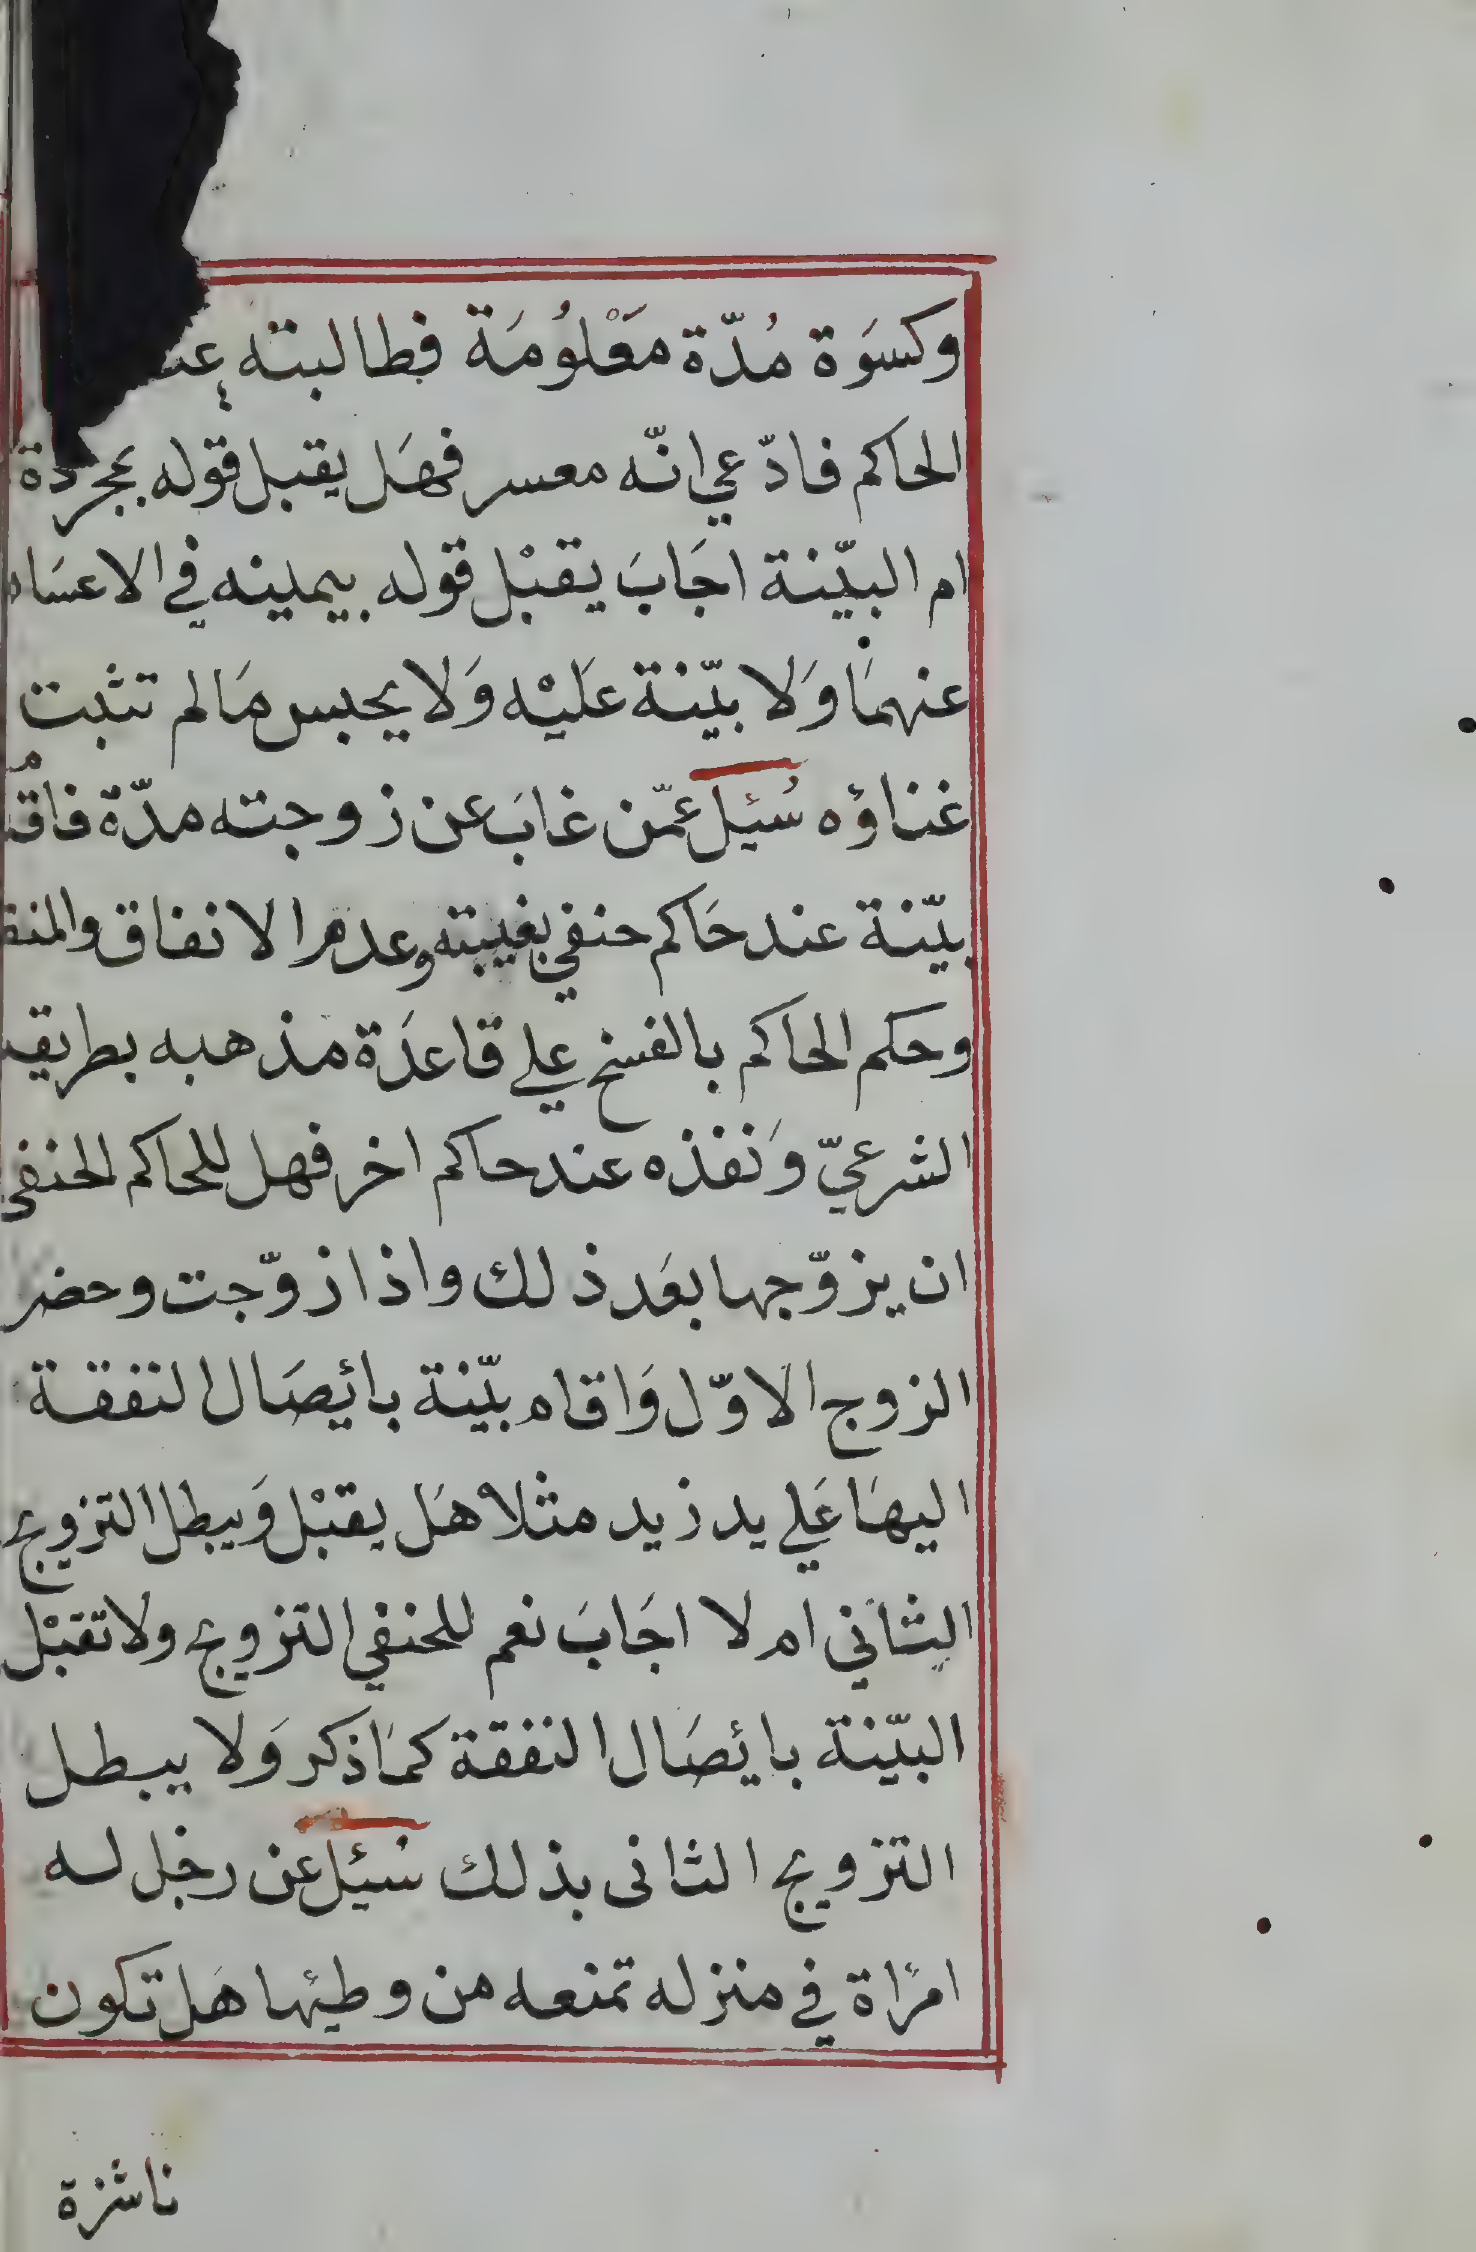 وكسَوَة مُدّة مَعْلُومَة فطالبته
الحاكم فادّعي انّه معسر فهَل يقبل قوله بمجردة
ام البيّنة اجَابَ يقبْل قوله بيمينه في الاعسَار
عنهمَا وَلا بيّنة عَليْه وَلا يحبس مَا لم تثبت
غناؤه سُئِل عمّن غابَ عن زوجته مدّة
بيّنة عند حَاكم حنفي بغيبته وعدم الانفاق
وحكم الحاكم بالفسخ علي قاعدَة مذهبه
الشرعيّ وَنفذه عند حاكم اخر فهل للحاكم الحنفي
ان يزوّجها بعَد ذلك واذا زوّجت وحضر
الزوج الاوّل وَاقام بيّنة بائصَال النفقة
اليهَا عَلي يد زيد مثلا هَل يقبْل وَيبطل التزويج
الثاني ام لا اجَابَ نعم للحنفي التزويج ولا تقبْل
البيّنة بائصَال النفقة كمَا ذكر وَلا يبطل
التزويج الثانى بذلك سُئِل عن رجل له
امرَاة في منزله تمنعه من وطيها هَل تكون
ناشزة